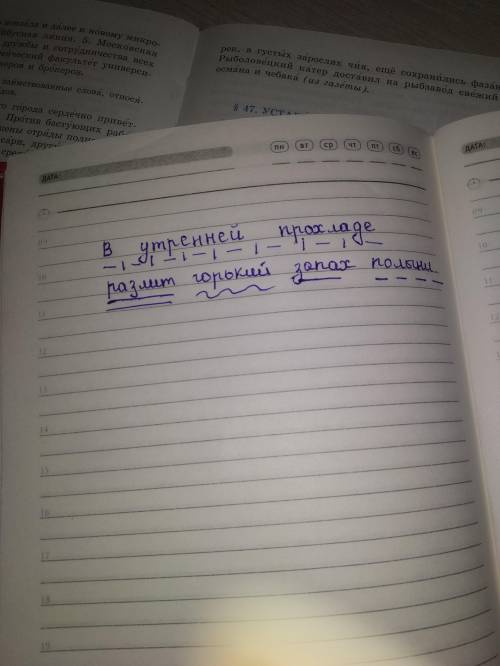 доклада и далее в новому микро-
бусная линия. 5. Московская
дружбы и сотрудничества всех
факультет универси-
заимствованные слова, относя.
го города сердечно привёт.
Против бастующих раб
рек, в густых зарослях чия, ещё сохранились фаза
Рыболовецкий катер доставил на рыбзавод свежий
османа и чебака (из газеты).
§ 47. УСТА
ДАТА:
ПН ВТ СР ЧТ ПТ СБ ВС
ДАТА:
09
В утренней прохладе
10
разлит горький запах полыни
11
12
13
14
15
16
17
18
19